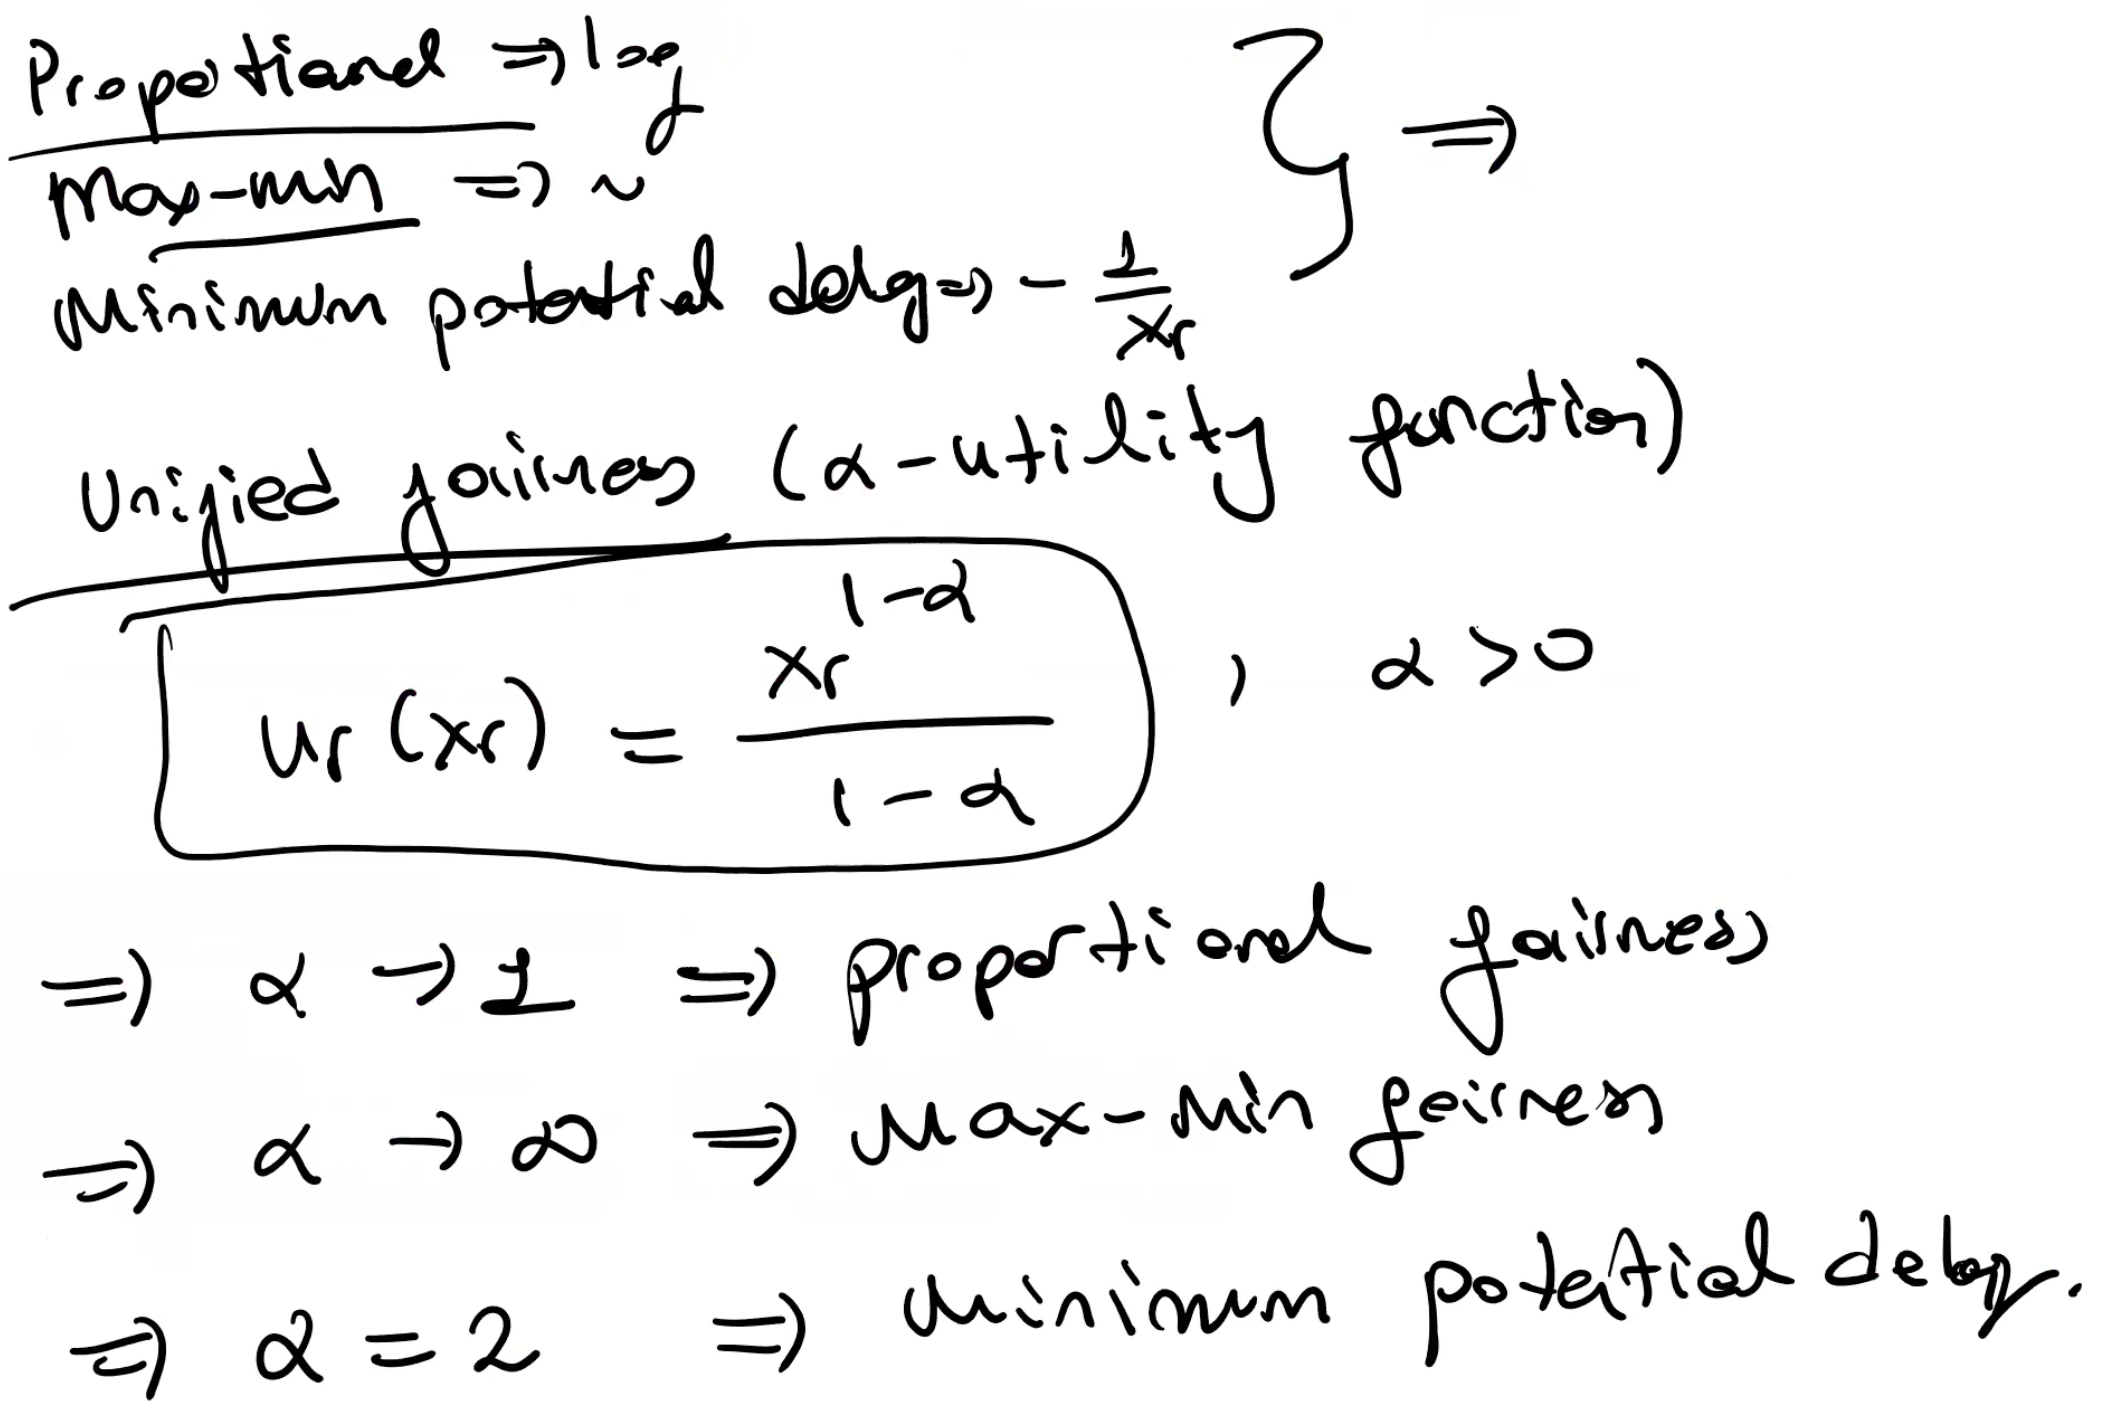 Proportional ⇒ log
Max-min ⇒ ~
Minimum potential delay ⇒ - 1/xr
} ⇒
Unified fairness (α-utility function)
Ur(xr) = xr^(1-α) / (1-α) , α > 0
⇒ α → 1 ⇒ proportional fairness
⇒ α → ∞ ⇒ Max-Min fairness
⇒ α = 2 ⇒ Minimum potential delay.